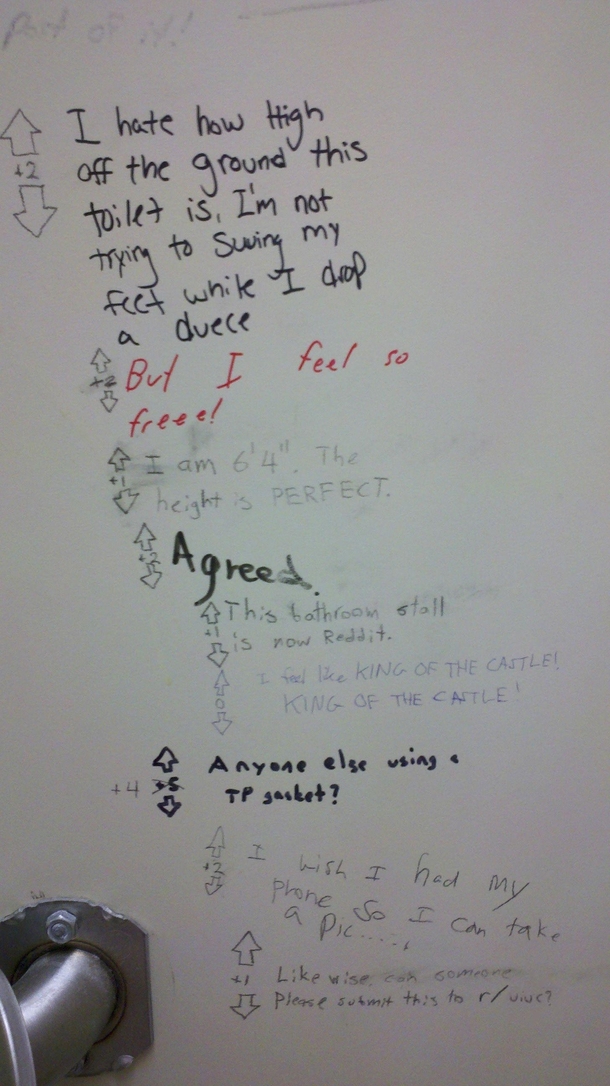 Part of it!
I hate how High
off the ground this
toilet is, I'm not
trying to Swing my
feet while I drop
a duece
+2
But I feel so
freee!
+2
I am 6'4". The
height is PERFECT.
+1
Agreed.
+2
This bathroom stall
is now Reddit.
+1
I feel like KING OF THE CASTLE!
KING OF THE CASTLE!
0
Anyone else using a
TP gasket?
+4 +5
I wish I had my
phone so I can take
a pic....,
+2
Likewise, can someone
Please submit this to r/uiuc?
+1